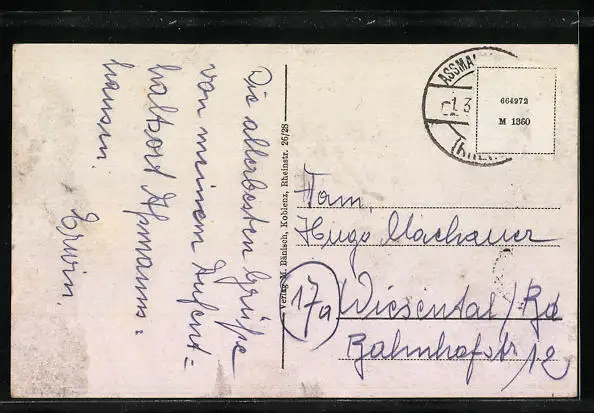 Die allerbesten Grüße
von meinem Aufent=
haltsort Aßmann=
hausen.
Erwin.
Verlag M. Bänisch, Koblenz, Rheinstr. 26/28
ASSMA
1.3
664972
M 1350
Fam.
Hugo Machauer
17a
Wiesental/Bd
Bahnhofstr. 12